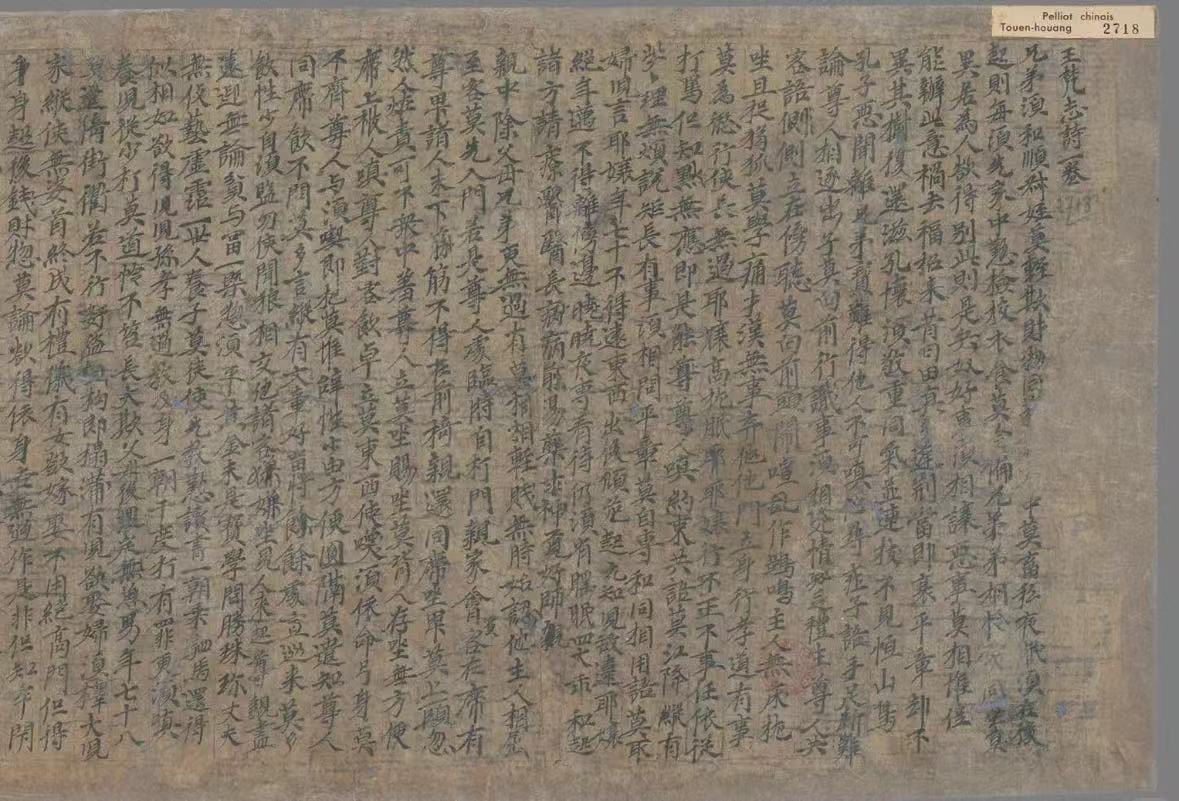 Pelliot chinois
Touen-houang 2718
王梵志詩一卷
兄弟須和順叔姪莫輕欺財物同 中莫畜私夜眠須在後
起則每須先家中懃檢校衣食莫令偏兄弟弟相憐 同 莫
異居為人欲得別此則是兵奴好事須相讓惡事莫相推但
能辦此意禍去福招來昔日田真 庭荊當即衰平章却不
異其樹復還滋孔懷須敬重同氣並連枝不見恒山鳥
孔子惡聞離兄弟寶難得他人不可嗔 尋莊子語手足斷難
論尊人相逐出子莫向前行識事須相逐情知乏禮生尊人共
客語側側立在傍聽莫向前頭鬧喧亂作鵶鳴主人無床枕
坐旦捉狗 莫學庸才漢無事弄他門立身行孝道有事
莫為愆行使長無過耶孃高枕眠耶孃行不正 事任依從
打罵但知默無應即是能尊人嗔約束共語莫江降縱有
些些理無煩說短長有事須相問平章莫自專和同相用語莫取
婦兒言耶孃年七十不得遠東西出後傾危起元知兒故違耶孃
絕年邁不得離傍邊曉夜專看待仍須省睡眠四大乖和起
諸方請療醫長病煎湯藥求神覓好師
親中除父母兄弟更無過有莫相輕賤無時始認他主人相屈
至客莫先入門若是尊人處臨時自打門親家會賓客在席有
尊卑諸人未下筯不得在前椅親還同席坐卑莫上頭忽
然人怪責可不眾中羞尊人立莫坐賜坐莫背人存坐無方便
席上被人嗔尊人對客飲卓立莫東西使喚須依命弓身莫
不齊尊人与酒喫即把莫推辭性少由方便圓融莫遣知尊人
同席飲不問莫多言縱有文章好留將餘處宣巡來莫多
飲性少自須監勿使聞狼相交他諸客嫌坐見人來起尊親盡
遠迎無論貧与富一槩惣須平黃金未是寶學問勝珠珍丈夫
無伎藝虛霑一世人養子莫徒使先教懃讀書一朝乘駟馬還得
似相如欲得兒孫孝無過教及身一朝千度打有罪更須嗔
養兒從少打莫道憐不笞長大欺父母後悔定無疑男年七十八
莫遣倚街衢若不行奸盜 構即摴蒱有兒欲娶婦須擇大兒
家縱使無姿首終成有禮儀有女欲嫁娶不用絕高門但得
身身超後錢財惣莫論 得依身 無過作是非但知牢閉